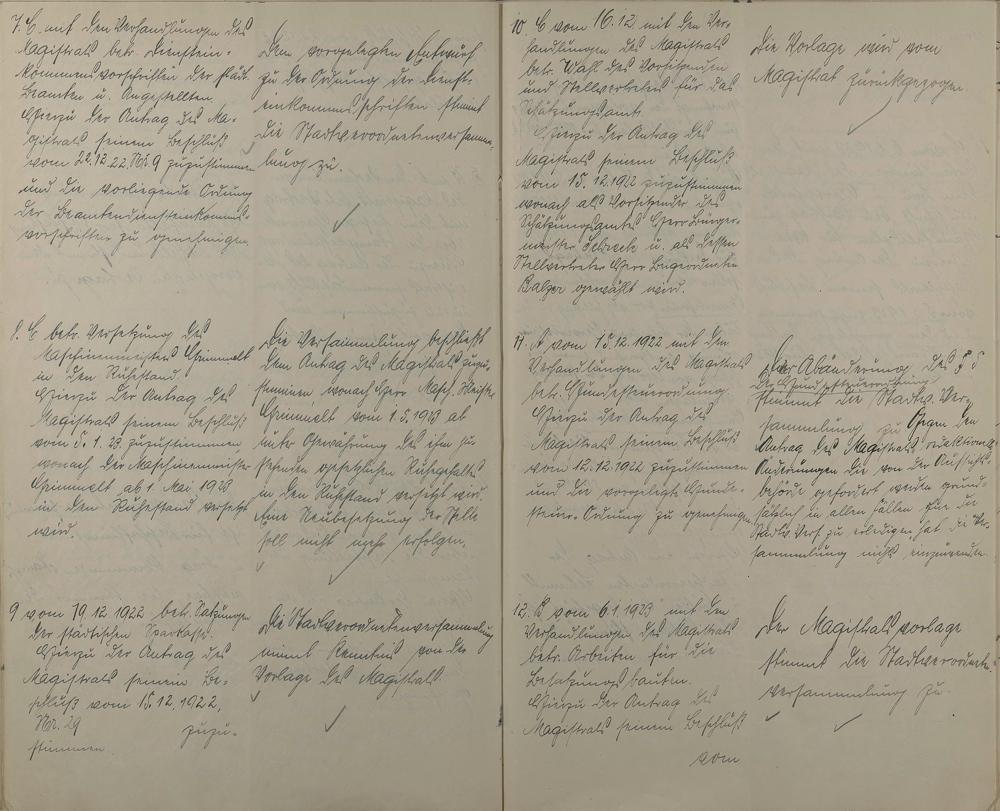 7. E. mit den Verhandlungen des
Magistrats betr. Dienstein-
kommensvorschriften der städt.
Beamten u. Angestellten.
Hierzu der Antrag des Ma-
gistrats seinem Beschluß
vom 22.12.22. No 9 zuzustimmen
und die vorliegende Ordnung
der Beamtendiensteinkomms-
vorschriften zu genehmigen.
Dem vorgelegten Entwurf
zu der Ordnung der Dienst-
einkommsschriften stimmt
die Stadtverordnetenversamm-
lung zu.
8. E betr. Versetzung des
Maschinenmeisters Grimmelt
in den Ruhestand.
Hierzu der Antrag des
Magistrats seinem Beschluß
vom 5.1.23. zuzustimmen
wonach der Maschinenmeister
Grimmelt ab 1 Mai 1923
in den Ruhestand versetzt
wird.
Die Versammlung beschließt
dem Antrag des Magistrats zuzu-
stimmen, wonach Herr Masch. Meister
Grimmelt vom 1.5.1923 ab
unter Gewährung des ihm zu
stehenden gesetzlichen Ruhegehaltes
in den Ruhestand versetzt wird.
Eine Neubesetzung der Stelle
soll nicht mehr erfolgen.
9 vom 19.12.1922 betr. Satzungen
der städtischen Sparkasse.
Hierzu der Antrag des
Magistrats seinem Be-
schluß vom 15.12.1922,
Nr. 29 zuzu-
stimmen.
Die Stadtverordnetenversammlung
nimmt Kenntnis von der
Vorlage des Magistrats.
10. E vom 16.12 mit den Ver-
handlungen des Magistrats
betr. Wahl des Vorsitzenden
und Stellvertreters für das
Schätzungsamt
Hierzu der Antrag des
Magistrats seinem Beschluß
vom 15.12.1922 zuzustimmen
wonach als Vorsitzender des
Schätzungsamtes Herr Bürger-
meister u. als dessen
Stellvertreter Herr Beigeordneter
Balzer gewählt wird.
Die Vorlage wird vom
Magistrat zurückgezogen.
11. A vom 15.12.1922 mit den
Verhandlungen des Magistrats
betr. Hundesteuerordnung.
Hierzu der Antrag des
Magistrats seinem Beschluß
vom 12.12.1922 zuzustimmen
und die vorgelegte Hunde-
steuer-Ordnung zu genehmigen.
Der Abänderung des § 5
der Hundesteuerordnung
stimmt die Stadtv. Ver-
sammlung zu. Gegen den
Antrag des Magistrats redaktionelle
Änderungen die von der Aufsichts-
behörde gefordert werden grund-
sätzlich in allen Fällen für die
Stadtv. Vers. zu erledigen, hat die Ver-
sammlung nichts einzuwenden.
12. E vom 6.1.1923 mit den
Verhandlungen des Magistrats
betr. Arbeiten für die
Besatzungsbauten.
Hierzu der Antrag des
Magistrats seinem Beschluß
vom
Der Magistratsvorlage
stimmt die Stadtverordneten-
versammlung zu.